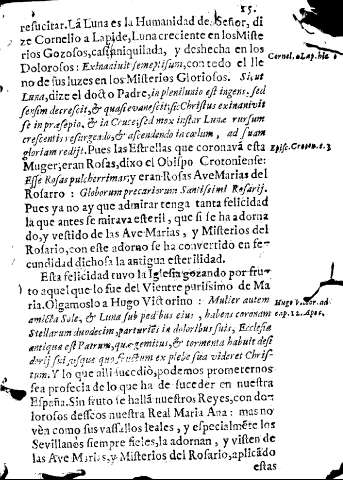 15.
resucitar. La Luna es la Humanidad del Señor, di
ze Cornelio a Lapide, Luna creciente en los Miste
rios Gozosos, casi aniquilada, y deshecha en los
Dolorosos: Exinanivit semetipsum, con todo el lle
no de sus luzes en los Misterios Gloriosos. Sicut
Luna, dize el docto Padre, in plenilunio est ingens, sed
sensim decrescit, & quasi evanescit: sic Christus exinanivit
se in præsepio, & in Cruce; sed mox instar Lunæ rursum
crescentis resurgendo, & ascendendo in cœlum, ad suam
gloriam redijt. Pues las Estrellas que coronavã esta
Muger; eran Rosas, dixo el Obispo Crotoniense:
Esse Rosas pulcherrimas; y eran Rosas Ave Marias del
Rosario: Globorum precariorum Santissimi Rosarij.
Pues ya no ay que admirar tenga tanta felicidad
la que antes se mirava esteril, que si se ha adorna
do, y vestido de las Ave Marias, y Misterios del
Rosario, con este adorno se ha convertido en fe-
cundidad dichosa la antigua esterilidad.
Esta felicidad tuvo la Iglesia gozando por fru
to aquel que lo fue del Vientre purissimo de Ma
ria. Oigamoslo a Hugo Victorino: Mulier autem
amicta Sole, & Luna sub pedibus eius, habens coronam
Stellarum duodecim, parturiẽs in doloribus suis, Ecclesia
antiqua est Patrum, quæ gemitus, & tormenta habuit
usque quo fructum ex plebe sua videret Chris-
tum. Y lo que alli sucedió, podemos prometernos
sea profecia de lo que ha de suceder en nuestra
España. Sin fruto se hallã nuestros Reyes, con do-
lorosos desseos nuestra Real Maria Ana: mas no
vèn como sus vassallos leales, y especialmẽte los
Sevillanos siempre fieles, la adornan, y visten de
las Ave Marias, y Misterios del Rosario, aplicãdo
estas
Cornel. a Lap. hic
Epis. Croton. s. 3
Hugo Victor. ad
cap. 12. Apoc.